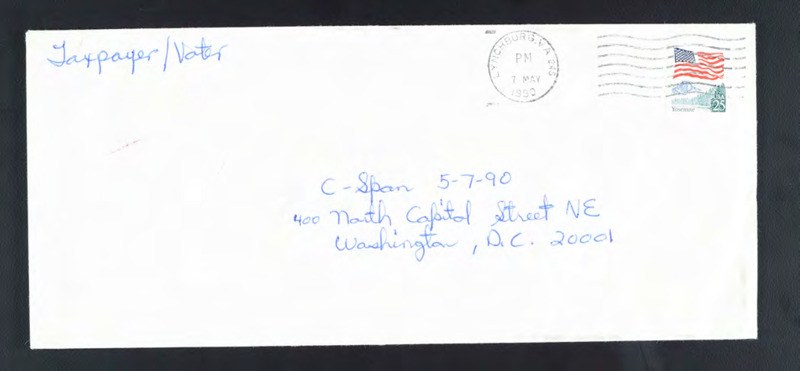 Taxpayer/Voter
LYNCHBURG, VA 245
PM
7 MAY
1990
USA
25
Yosemite
C-Span 5-7-90
400 North Capitol Street NE
Washington, D.C. 20001